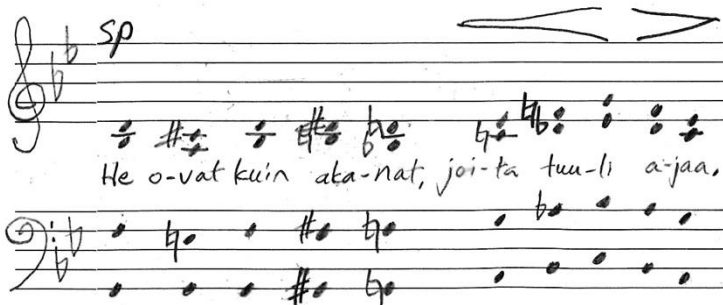 sp
He o-vat kuin aka-nat, joi-ta tuu-li a-jaa.